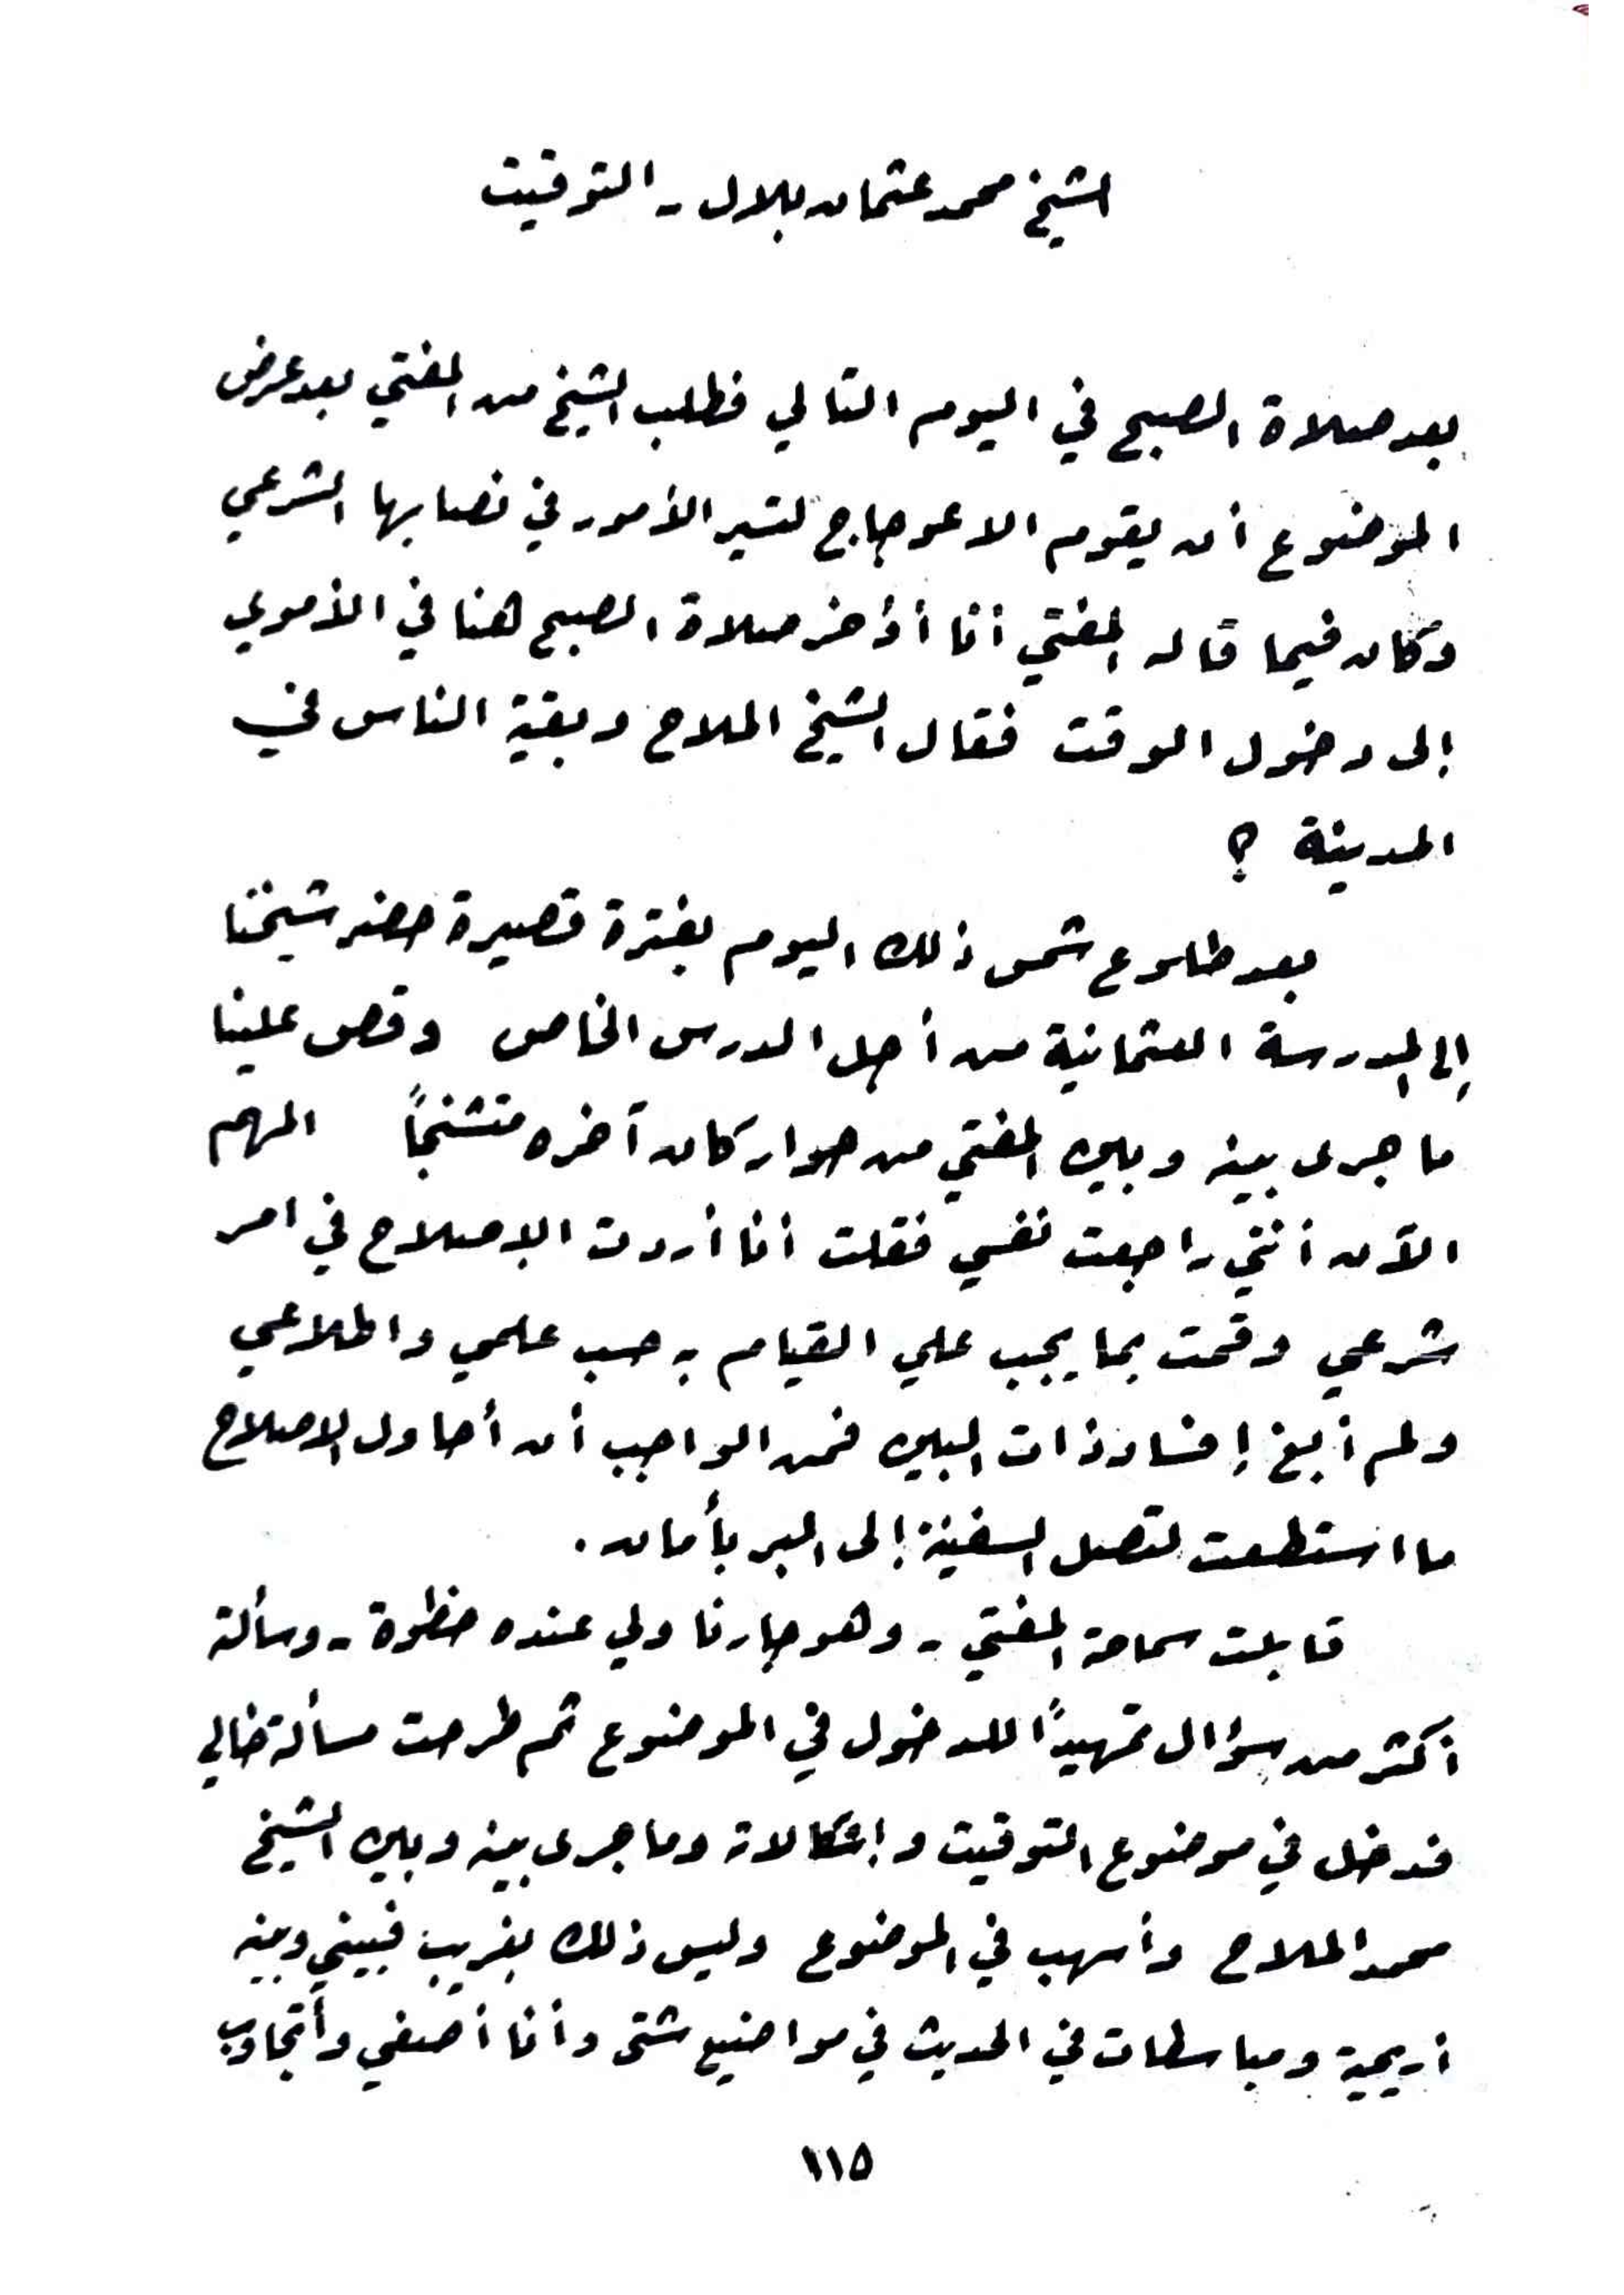 الشيخ محمد عثمان بلال - التوقيت
بعد صلاة الصبح في اليوم التالي فطلب الشيخ من المفتي بعد عرض
الموضوع أن يقوم الاعوجاج لتسير الأمور في نصابها الشرعي
وكان فيما قاله المفتي أنا أؤخر صلاة الصبح هنا في الأموي
إلى دخول الوقت فقال الشيخ الملاح وبقية الناس في
المدينة ؟
بعد طلوع شمس ذلك اليوم بفترة قصيرة حضر شيخنا
إلى المدرسة العثمانية من أجل الدرس الخاص وقص علينا
ما جرى بينه وبين المفتي من حوار كان آخره متشنجاً المهم
الآن أنني راجعت نفسي فقلت أنا أردت الإصلاح في امر
شرعي وقمت بما يجب علي القيام به حسب علمي واطلاعي
ولم أبغ إفساد ذات البين فمن الواجب أن أحاول الاصلاح
ما استطعت لتصل السفينة إلى البر بأمان .
قابلت سماحة المفتي - وهو جارنا ولي عنده حظوة - وسألته
أكثر من سؤال تمهيداً للدخول في الموضوع ثم طرحت مسألة خالي
فدخل في موضوع التوقيت وإشكالاته وما جرى بينه وبين الشيخ
محمد الملاح وأسهب في الموضوع وليس ذلك بغريب فبيني وبينه
أريحية ومباسطات في الحديث في مواضيع شتى وأنا أصغي وأتجاوب
١١٥